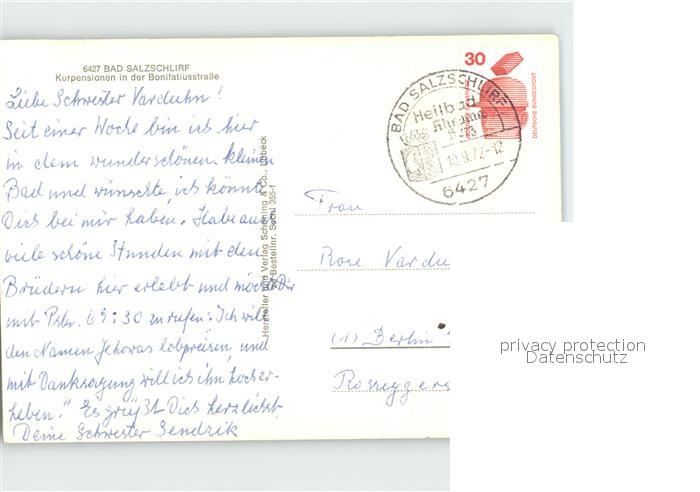 6427 BAD SALZSCHLIRF
Kurpensionen in der Bonifatiusstraße
Liebe Schwester Varduhn!
Seit einer Woche bin ich hier
in dem wunderschönen kleinen
Bad und wünschte, ich könnte
Dich bei mir haben. Habe auch
viele schöne Stunden mit den
Brüdern hier erlebt und möchte Dir
mit Pslm. 69:30 zurufen: Ich will
den Namen Jehovas lobpreisen, und
mit Danksagung will ich ihn hocher-
heben." Es grüßt Dich herzlichst
Deine Schwester Sendzik
Hersteller und Verlag Schöning & Co., Lübeck
Bestellnr.
30
DEUTSCHE BUNDESPOST
BAD SALZSCHLIRF
Heilbad
12.9.72-12
6427
Frau
Rose Vardu
(1) Berlin
Roseggers
privacy protection
Datenschutz